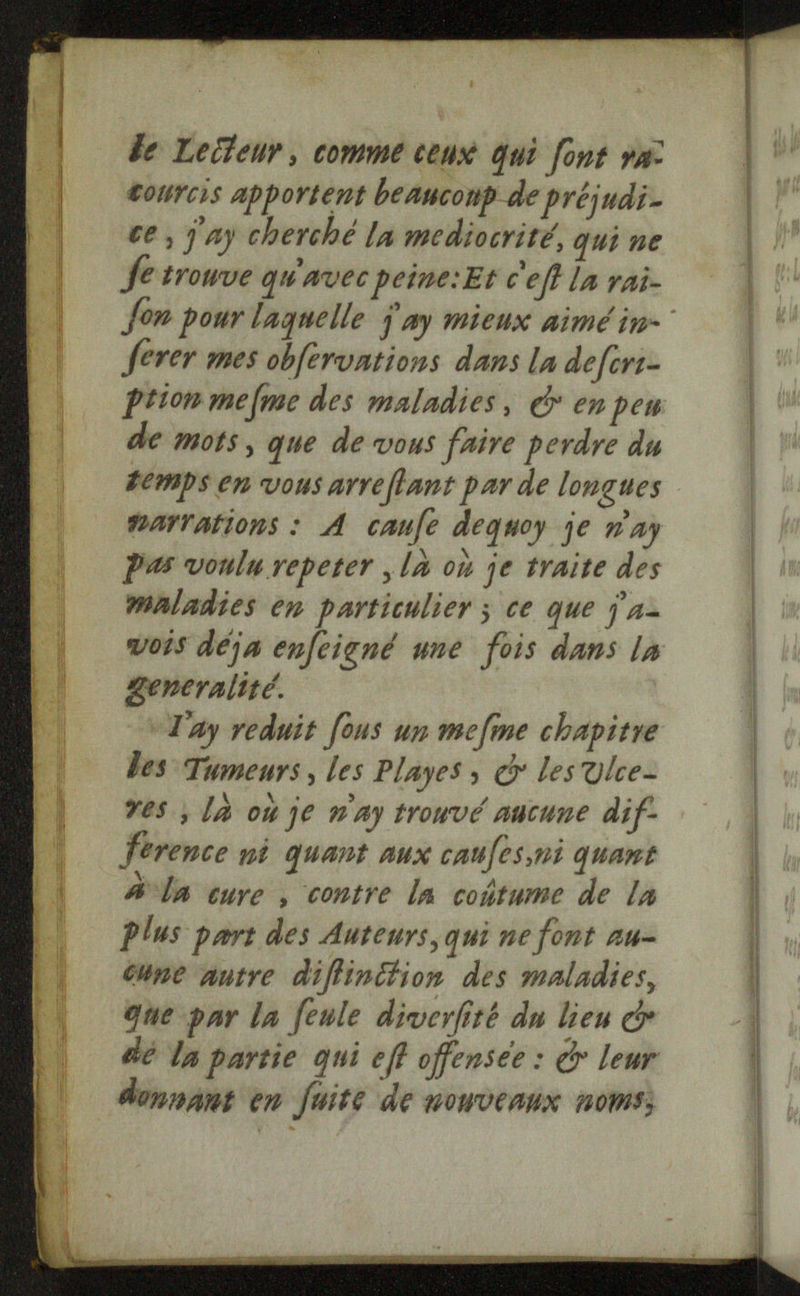 le Lecteur, comme ceux qui ſont ra-
courcis apportent beaucoup de préjudi-
ce, j'ay cherché la mediocrité, qui ne
ſe trouve qu'avec peine: Et c'eſt la rai-
ſon pour laquelle j'ay mieux aimé in-
ſerer mes obſervations dans la deſcri-
ption meſme des maladies, & en peu
de mots, que de vous faire perdre du
temps en vous arreſtant par de longues
narrations : A cauſe dequoy je n'ay
pas voulu repeter, là où je traite des
maladies en particulier ; ce que j'a-
vois déja enſeigné une fois dans la
generalité.
I'ay reduit ſous un meſme chapitre
les Tumeurs, les Playes, & les Vlce-
res, là où je n'ay trouvé aucune dif-
ference ni quant aux cauſes, ni quant
à la cure, contre la coûtume de la
plus part des Auteurs, qui ne font au-
cune autre diſtinction des maladies,
que par la ſeule diverſité du lieu &
de la partie qui eſt offensée : & leur
donnant en ſuite de nouveaux noms,